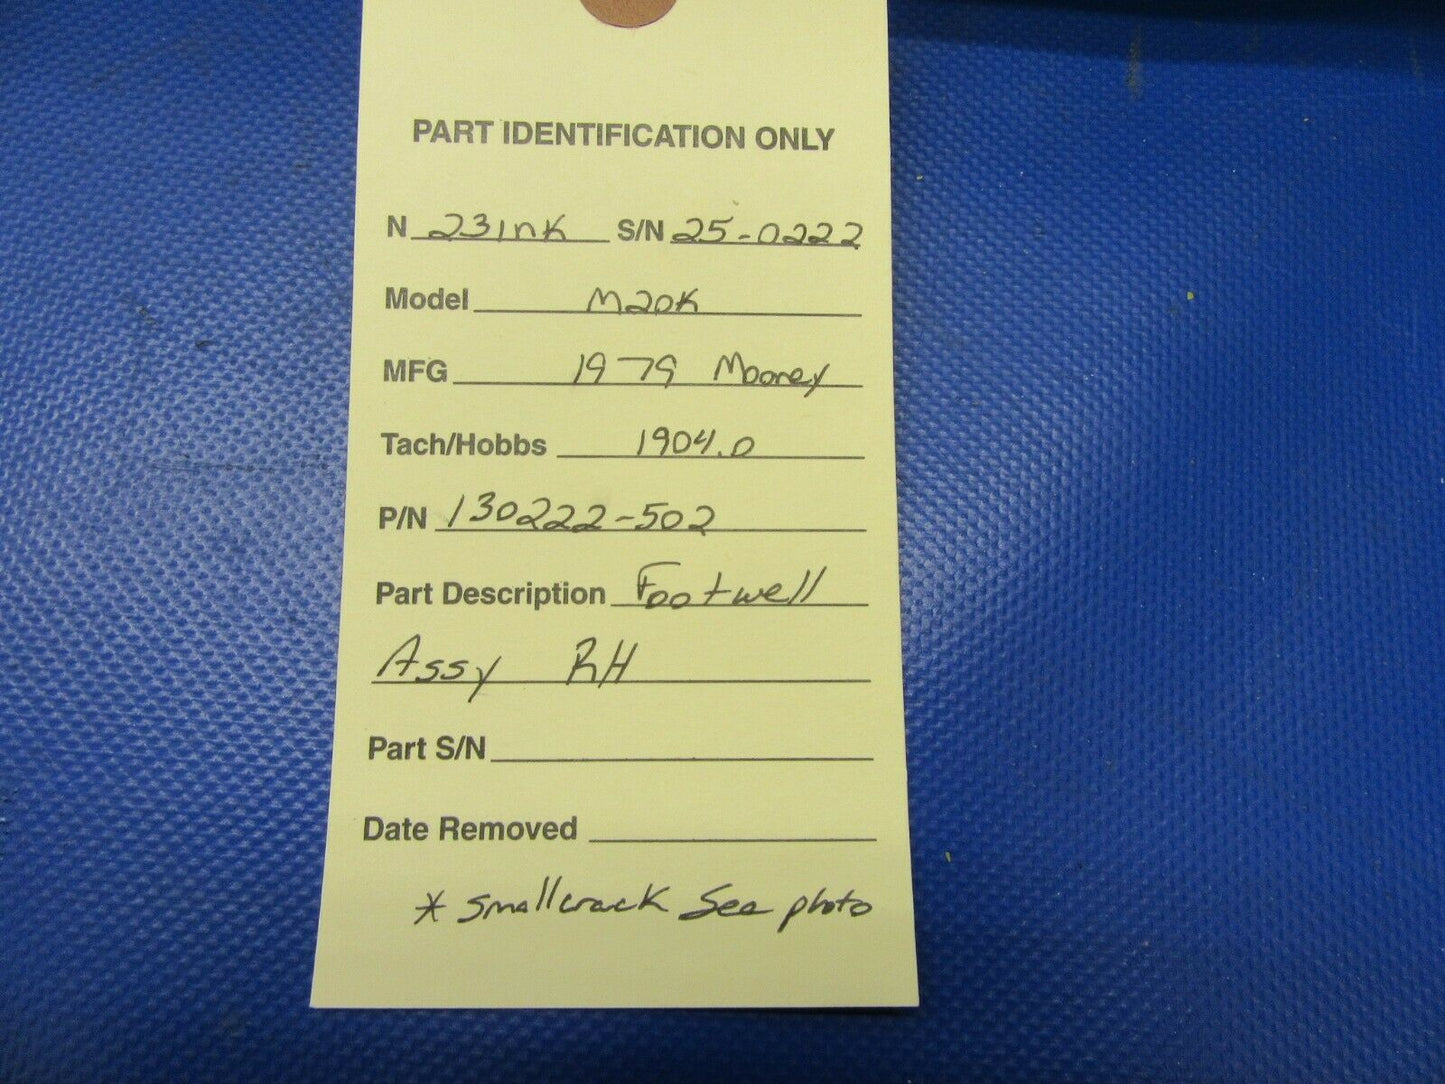 PART IDENTIFICATION ONLY
N 231NK S/N 25-0222
Model M20K
MFG 1979 Mooney
Tach/Hobbs 1904.0
P/N 130222-502
Part Description Footwell
Assy RH
Part S/N
Date Removed
* small crack See photo